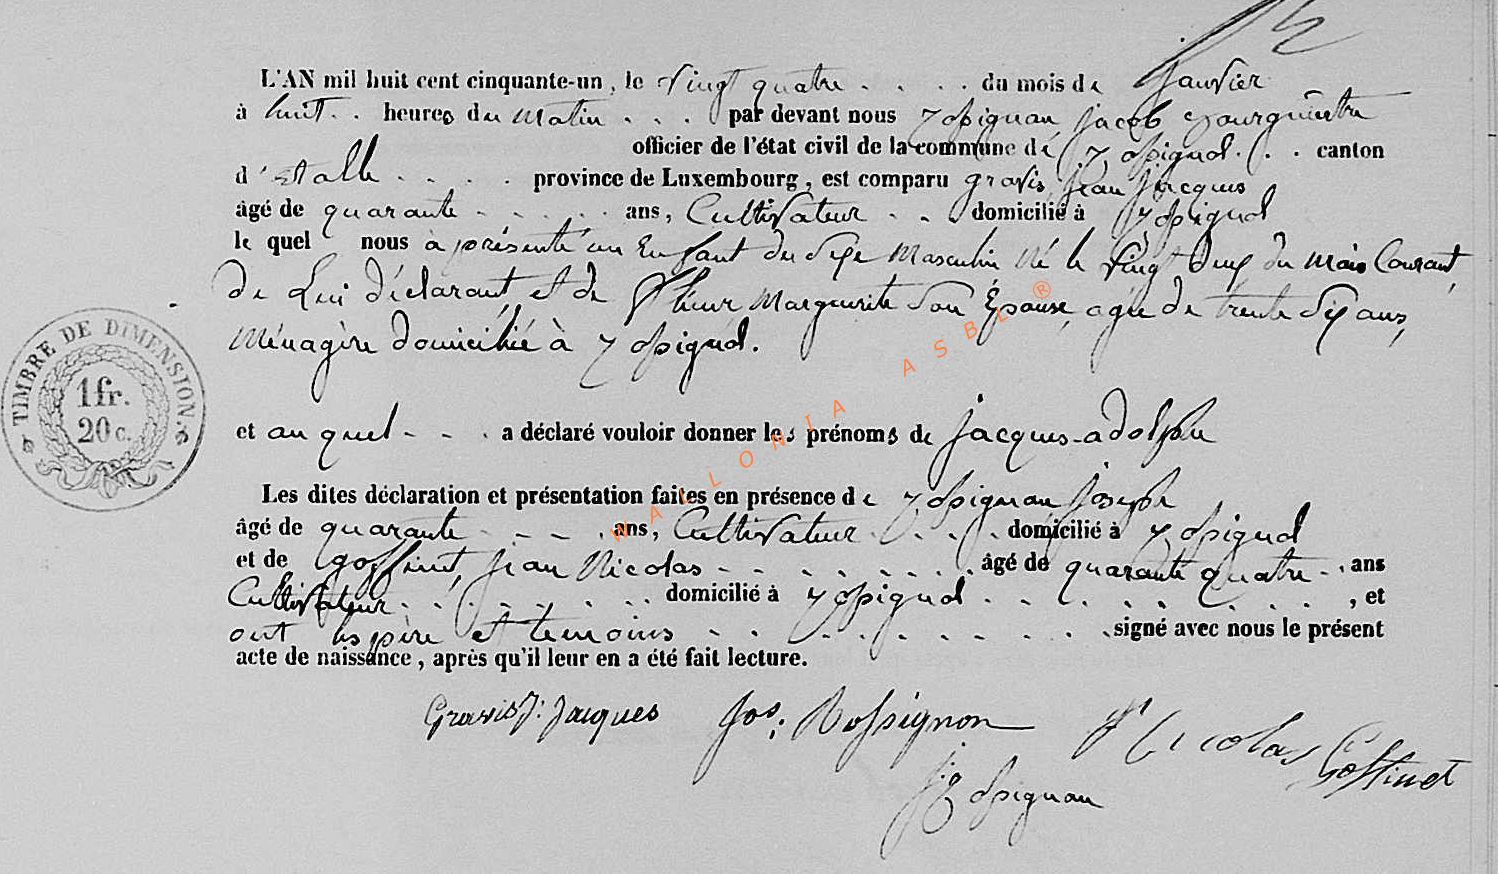 L'AN mil huit cent cinquante-un, le vingt quatre . . . . du mois de Janvier
à huit . . heures du matin . . . par devant nous Rossignon Jacob Bourgmestre
officier de l'état civil de la commune de Rossignol . . . canton
d'Etalle . . . . province de Luxembourg, est comparu gravis, Jean Jacques
âgé de quarante . . . . . ans, Cultivateur . . . domicilié à Rossignol
le quel nous a présenté un Enfant du Sexe Masculin Né le vingt deux du mois Courant,
de Lui déclarant, et de Marguerite Son Épouse, agée de trente Six ans,
Ménagère domiciliée à Rossignol.
TIMBRE DE DIMENSION.
1 fr.
20 c.
et au quel - - . a déclaré vouloir donner les prénoms de Jacques-adolphe
Les dites déclaration et présentation faites en présence de Rossignon Joseph
âgé de quarante - - - . ans, Cultivateur . . . . domicilié à Rossignol
et de goffinet, Jean Nicolas - - . . . . . . âgé de quarante quatre . . ans
Cultivateur . . . . . . . domicilié à Rossignol . . . . . . . . , et
ont les père et temoins - . . . . . . . . signé avec nous le présent
acte de naissance, après qu'il leur en a été fait lecture.
Gravis J. Jacques Jos: Rossignon Nicolas Goffinet
J Rossignon
WALLONIA ASBL ®